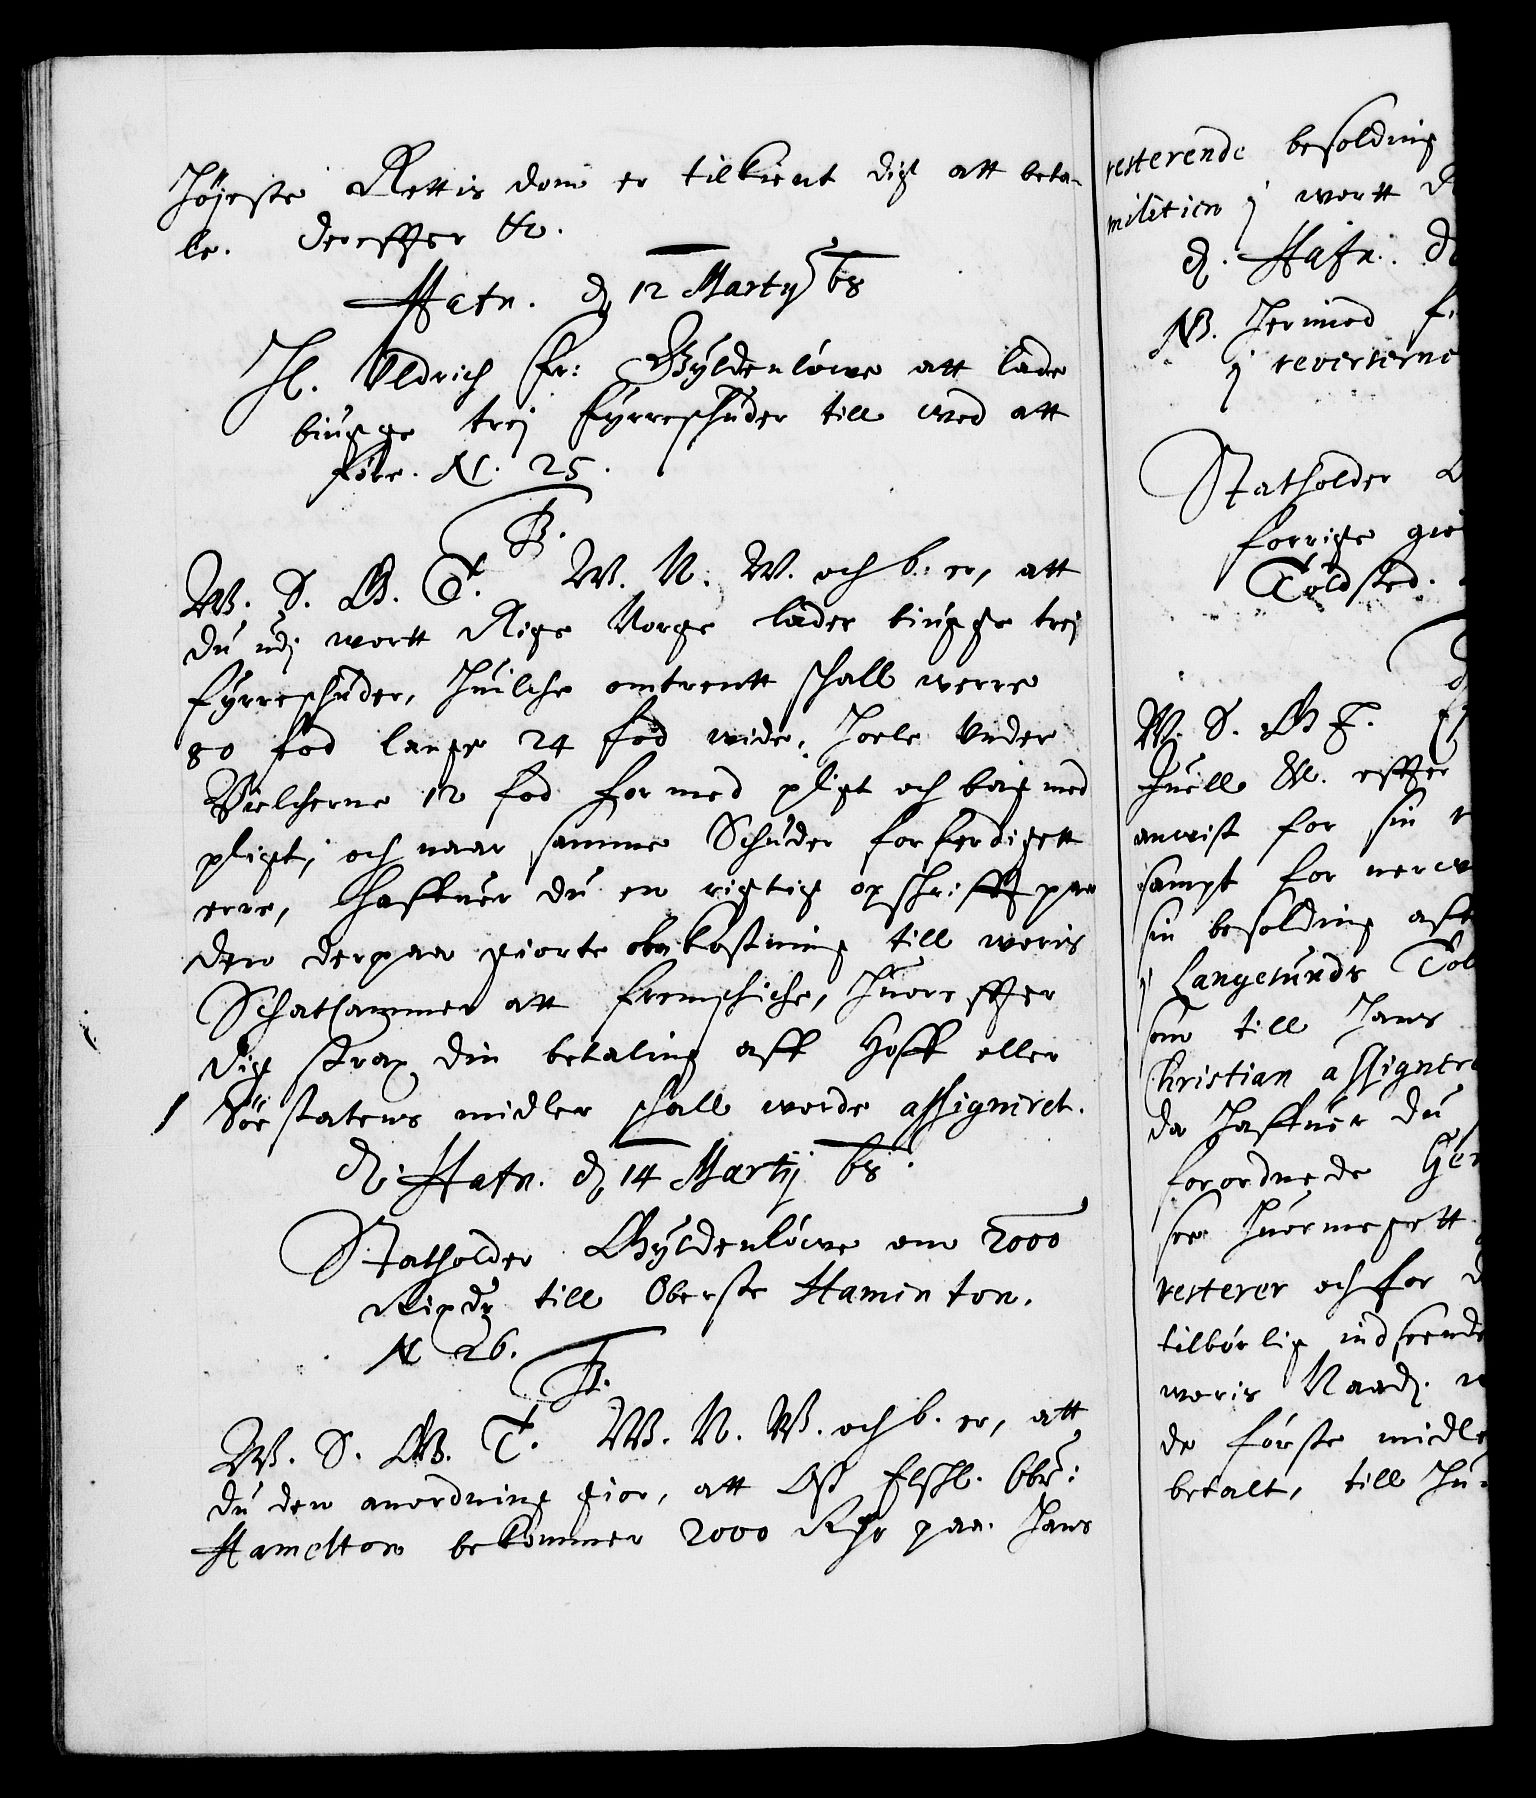 Højeste Rettis dom er tilkient digt att beta-
le. Dereffter etc.
Hafn. d. 12 Martij 68
H. Uldrich Fr: Gyldenlöwe att lade
biugge trej fyrreschuder till wed att
före. N. 25.
B.
W. S. G. T. W. N. W. och b: er, att
du udj wortt Rige Norge lader biugge trej
fyrreschuder, huilche omtrentt schall werre
80 fod lange 24 fod wide, hoele under
Bielcherne 12 fod for med pligt och bag med
pligt, och naar samme Schuder forferdigett
erre, haffuer du en rigtig opschrifft paa
den derpaa giorte bekostning till woris
Schatkammer att fremschiche, huoreffter
dig strax din betaling aff Hoff eller
Söe statens midler schall worde assigneret.
d. Hafn. d. 14 Martij 68.
Statholder Gyldenlöwe om 2000
Rixdr till Oberste Haminton.
N 26.
B.
W. S. G. T. W. N. W. och b. er, att
du den anordning gior, att Oss Elschl. Obr:
Hamelton bekommer 2000 Rdr paa hans
resterende besolding
militien j wortt
d. Hafn. d
NB. Hermed
j reverserne
Statholder
forrige
Toldsted.
W. S. G T.
Juell &c. effter
anwist for sin
sampt for
sin besolding
j Langesunds Tol
som till hans
Christian assignere
da haffuer du
forordnede
see huormegett
resterer och for
tilbörlig indseende
woris Naad.
de förste midle
betalt, till hu-